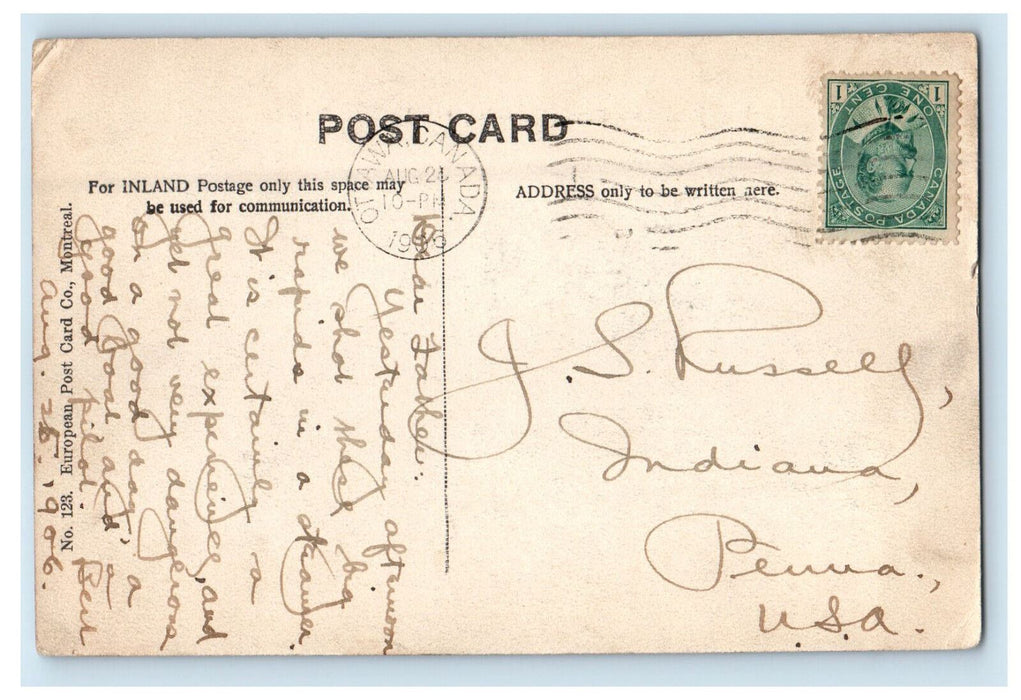 POST CARD
For INLAND Postage only this space may
be used for communication.
ADDRESS only to be written here.
OTTAWA, CANADA.
AUG 26
10-PM
1906
1 1
ONE CENT
CANADA POSTAGE
Dear Father:
Yesterday afternoon
we shot these big
rapids in a steamer.
It is certainly a
great experience, and
yet not very dangerous
on a good day, a
good boat and a
good pilot. Bert
Aug. 26. 1906.
J. S. Russell,
Indiana,
Penna.,
U.S.A.
No. 123. European Post Card Co., Montreal.